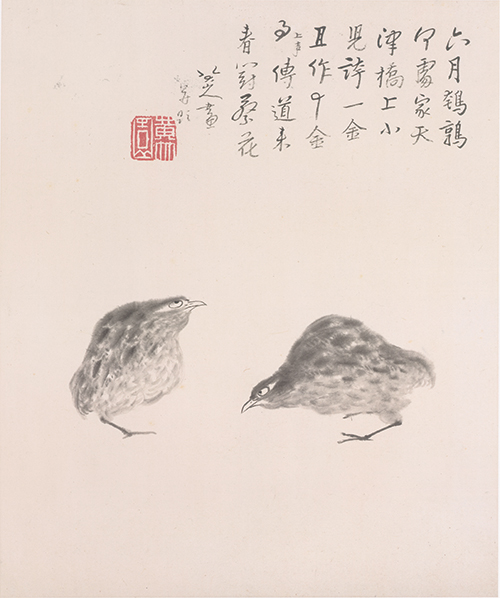 六月鵪鶉
何處家天
津橋上小
兒誇一金
且作十金
事傳道來
春對蔡花
八大山人畫